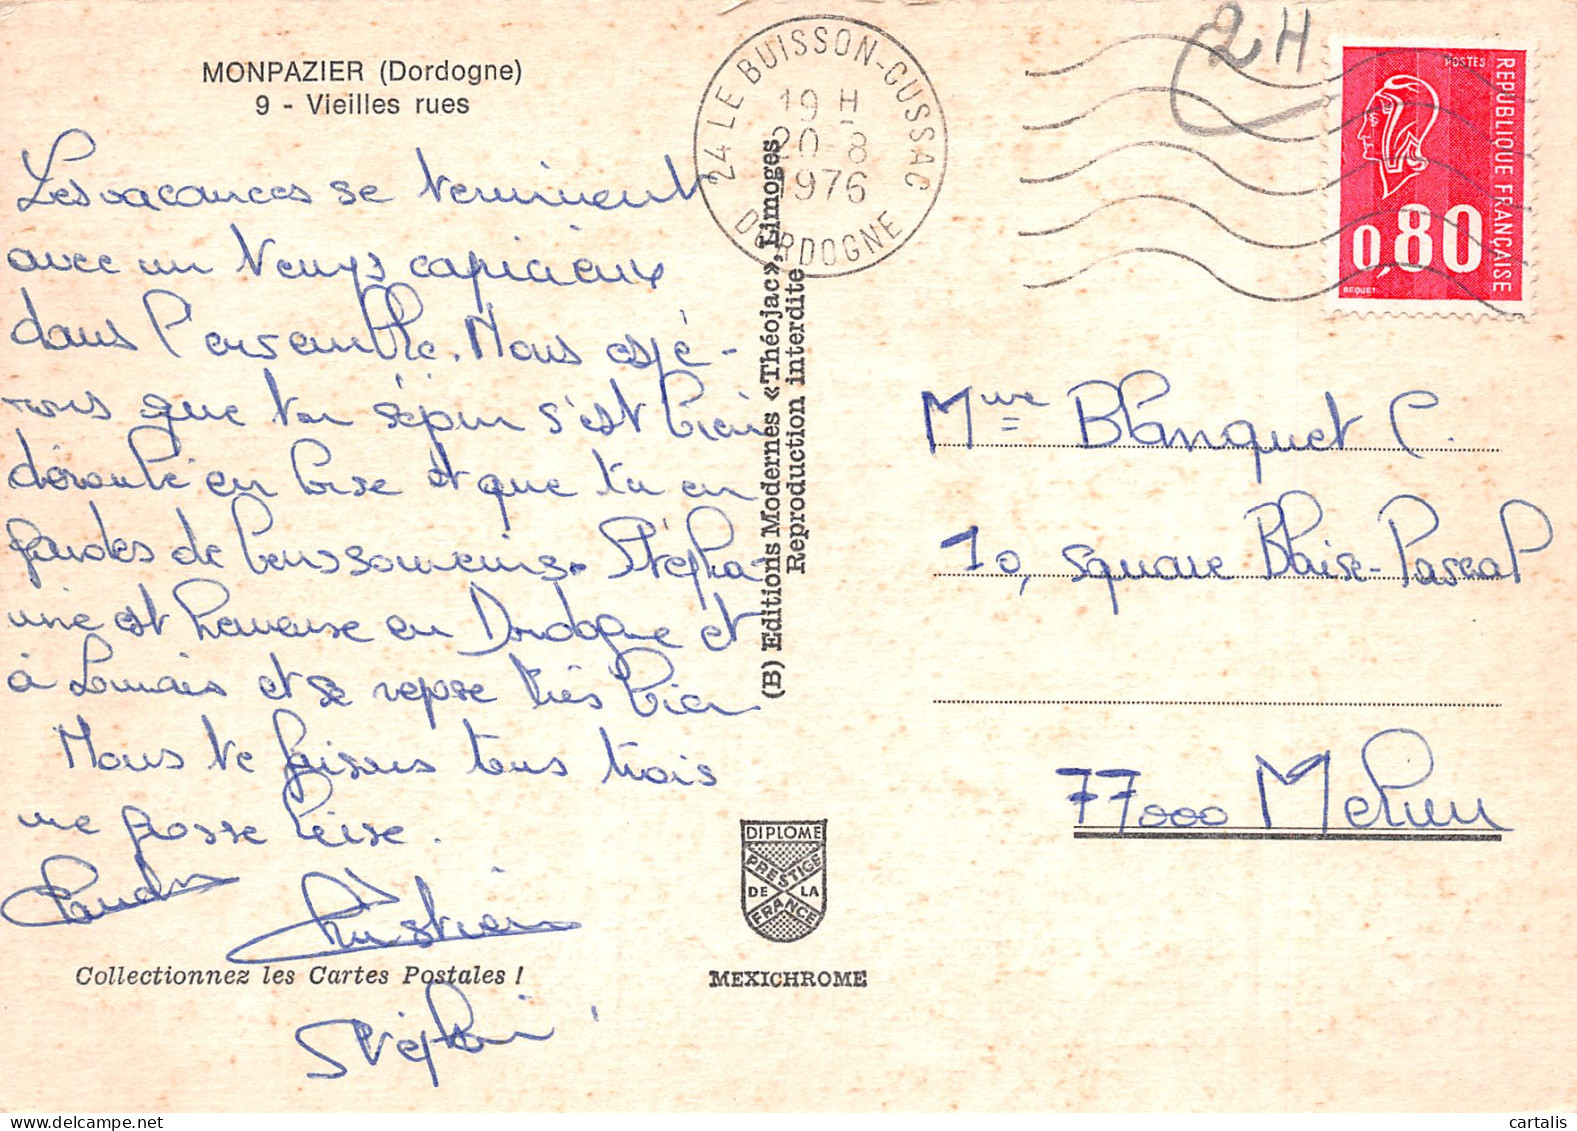 MONPAZIER (Dordogne)
9 - Vieilles rues
Les vacances se terminent
avec un temps capricieux
dans l'ensemble. Nous espé-
rons que ton séjour s'est bien
déroulé en et que tu en
gardes de bons souvenirs. Stépha-
nie est heureuse en Dordogne et
à et se repose très bien
Nous te faisons tous trois
une grosse bise.
Christian
Collectionnez les Cartes Postales !
Stéphanie
(B) Editions Modernes «Théojac», Limoges
Reproduction interdite
DIPLOME
PRESTIGE
DE LA
FRANCE
MEXICHROME
24 LE BUISSON-CUSSAC
19 H
20-8
1976
DORDOGNE
2H
POSTES
REPUBLIQUE FRANÇAISE
0,80
BEQUET
Mme Blanquet C.
10, square Blaise-Pascal
77000 Melun
cartalis